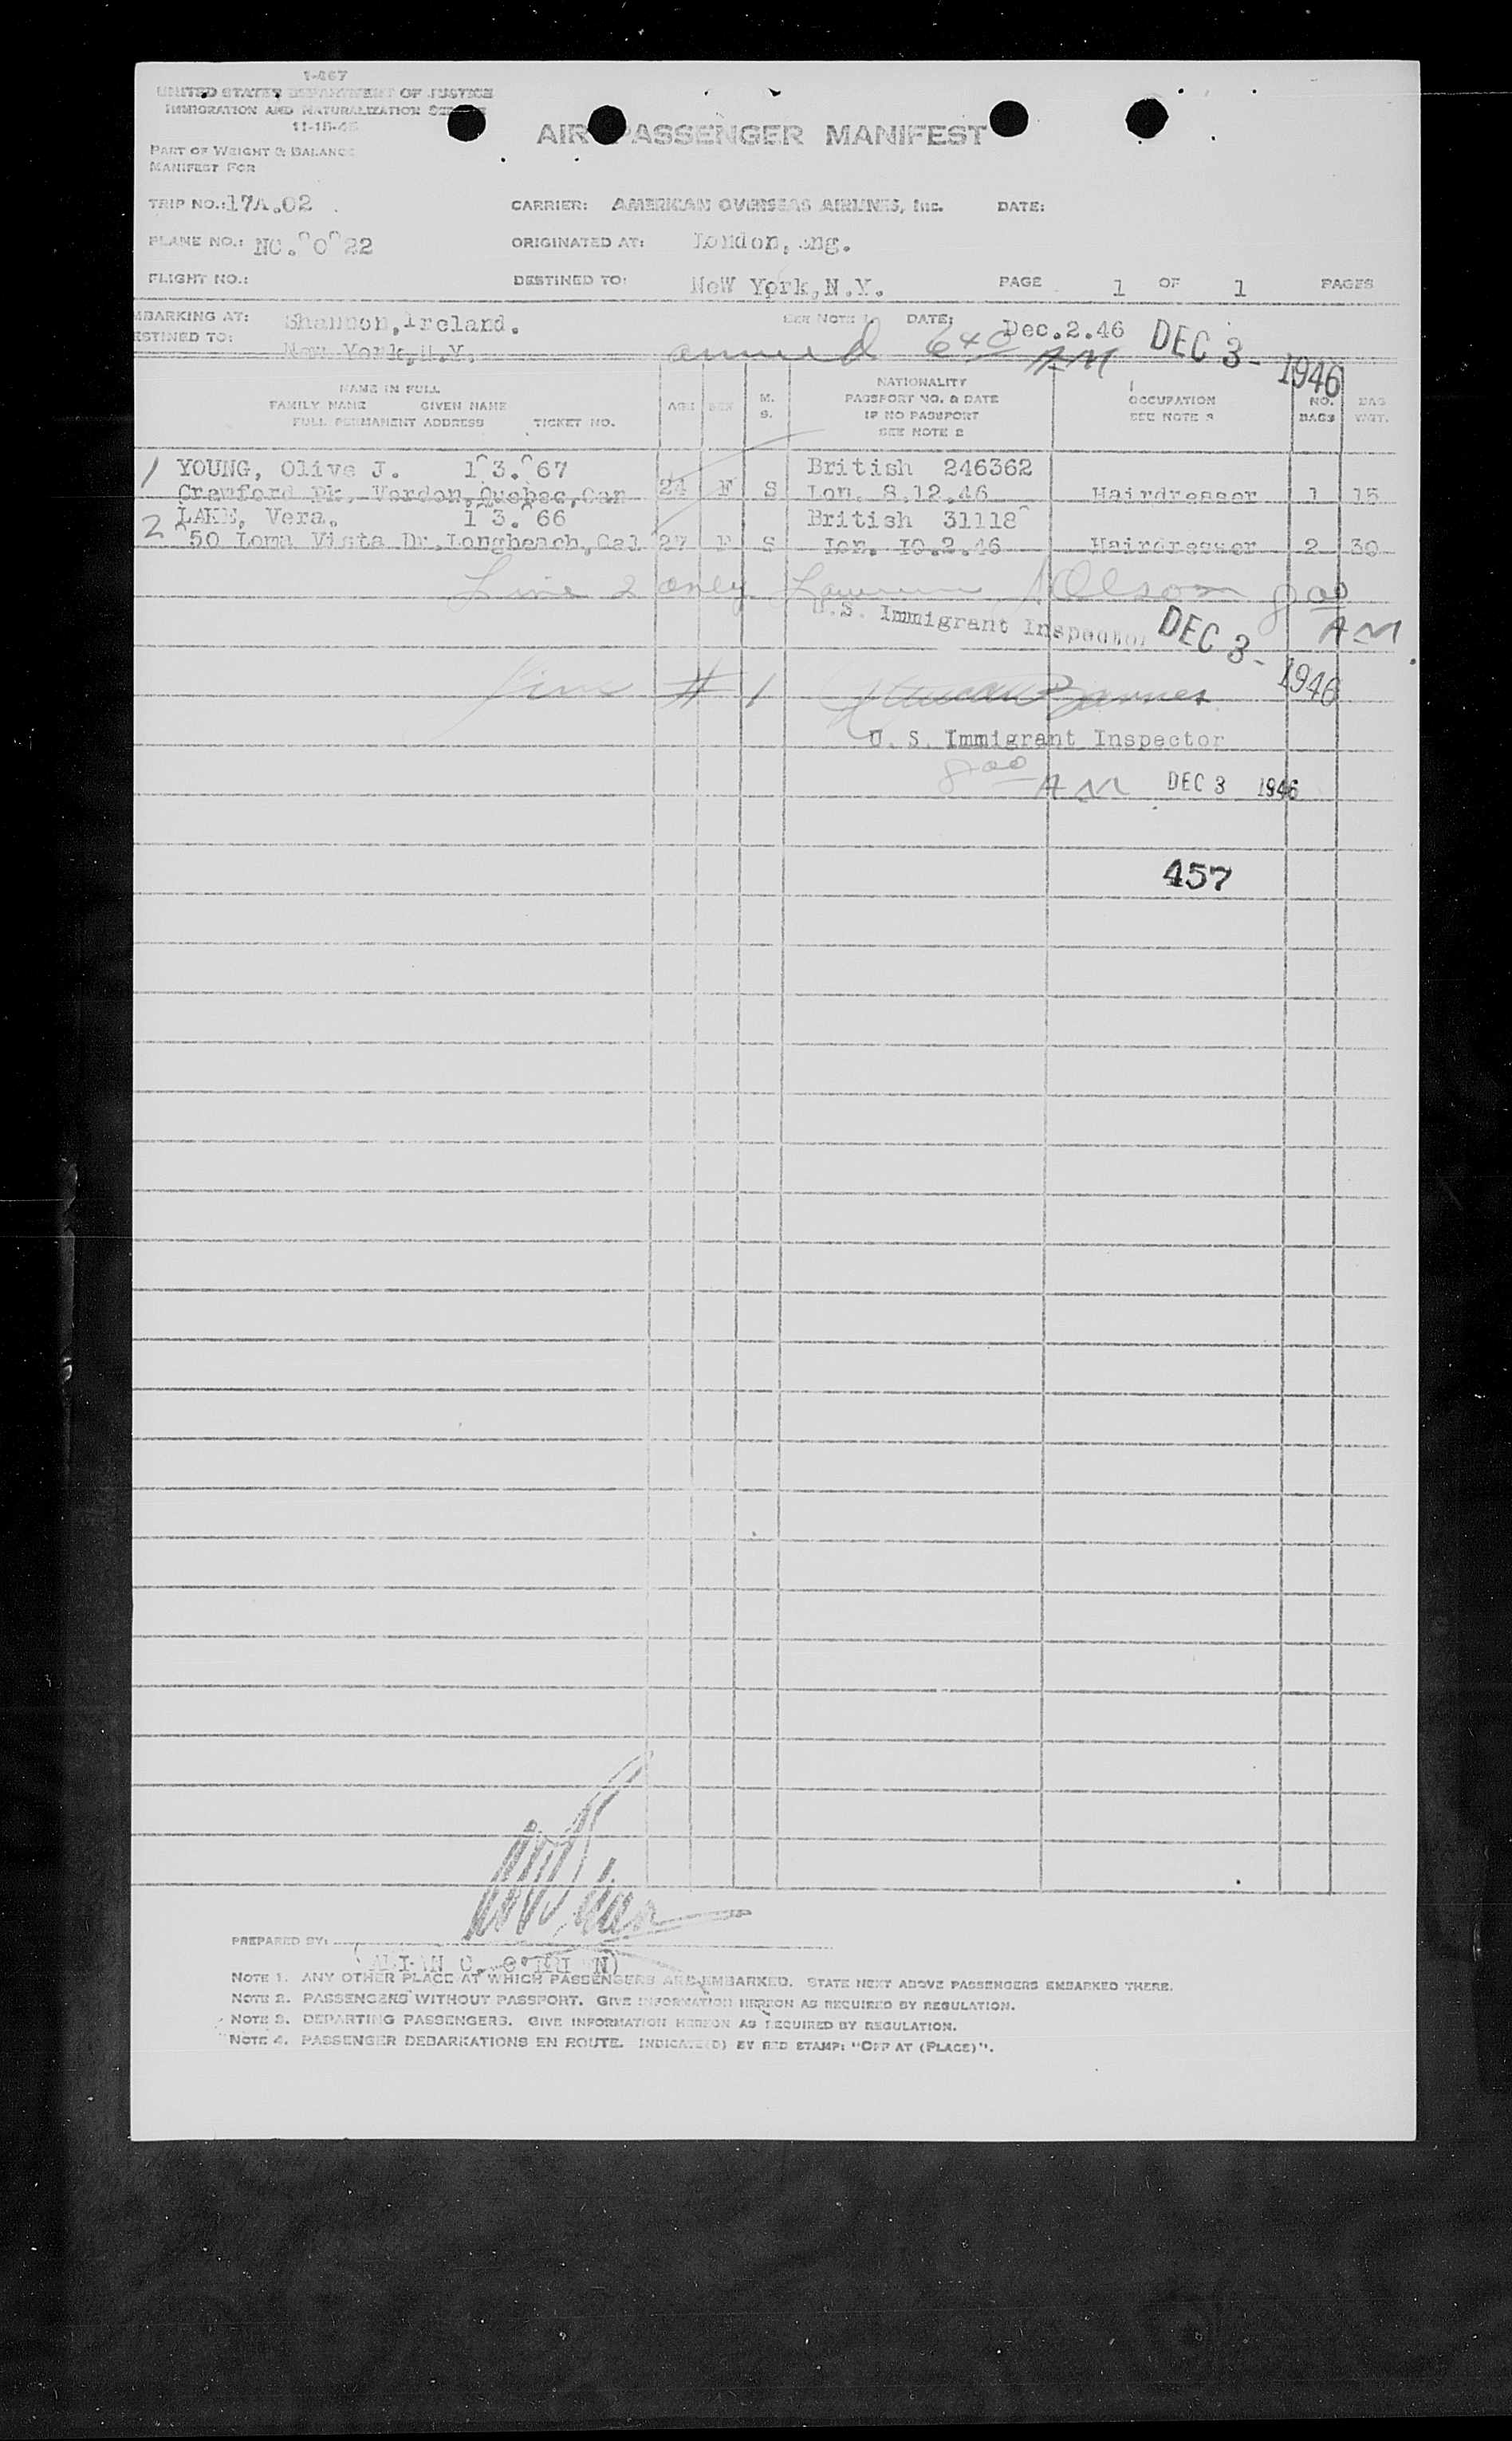 1-467
UNITED STATES DEPARTMENT OF JUSTICE
IMMIGRATION AND NATURALIZATION SERVICE
11-15-45
AIR PASSENGER MANIFEST
PART OF WEIGHT & BALANCE
MANIFEST FOR
TRIP NO.: 17A.02 CARRIER: AMERICAN OVERSEAS AIRLINES, Inc. DATE:
PLANE NO.: NC. 0 22 ORIGINATED AT: London, Eng.
FLIGHT NO.: DESTINED TO: NeW York,N.Y. PAGE 1 OF 1 PAGES
MBARKING AT: Shannon,Ireland. SEE NOTE 1. DATE: Dec.2.46
ESTINED TO: New York,N.Y. arrived 640 AM DEC 3 - 1946
NAME IN FULL
FAMILY NAME GIVEN NAME
FULL PERMANENT ADDRESS TICKET NO.
AGE SEX M. S.
NATIONALITY
PASSPORT NO. & DATE
IF NO PASSPORT
SEE NOTE 2
OCCUPATION
SEE NOTE 3
NO. BAGS
BAG WGT.
1 YOUNG, Olive J. 1^3.^67 British 246362
Crawford Pk, Verdon,Quebec,Can 24 F S Lon. 8.12.46 Hairdresser 1 15
2 LAKE, Vera. 1^3.^66 British 31118^
^50 Loma Vista Dr.Longbeach,Cal 27 F S Lon. 10.2.46 Hairdresser 2 30
Line 2 only Olson 800 AM
U.S. Immigrant Inspector DEC 3 - 1946
Line # 1 Barnes
U. S. Immigrant Inspector
800 AM DEC 3 1946
457
PREPARED BY:
NOTE 1. ANY OTHER PLACE AT WHICH PASSENGERS ARE EMBARKED. STATE NEXT ABOVE PASSENGERS EMBARKED THERE.
NOTE 2. PASSENGERS WITHOUT PASSPORT. GIVE INFORMATION HEREON AS REQUIRED BY REGULATION.
NOTE 3. DEPARTING PASSENGERS. GIVE INFORMATION HEREON AS REQUIRED BY REGULATION.
NOTE 4. PASSENGER DEBARKATIONS EN ROUTE. INDICATE(D) BY RED STAMP: "OFF AT (PLACE)".